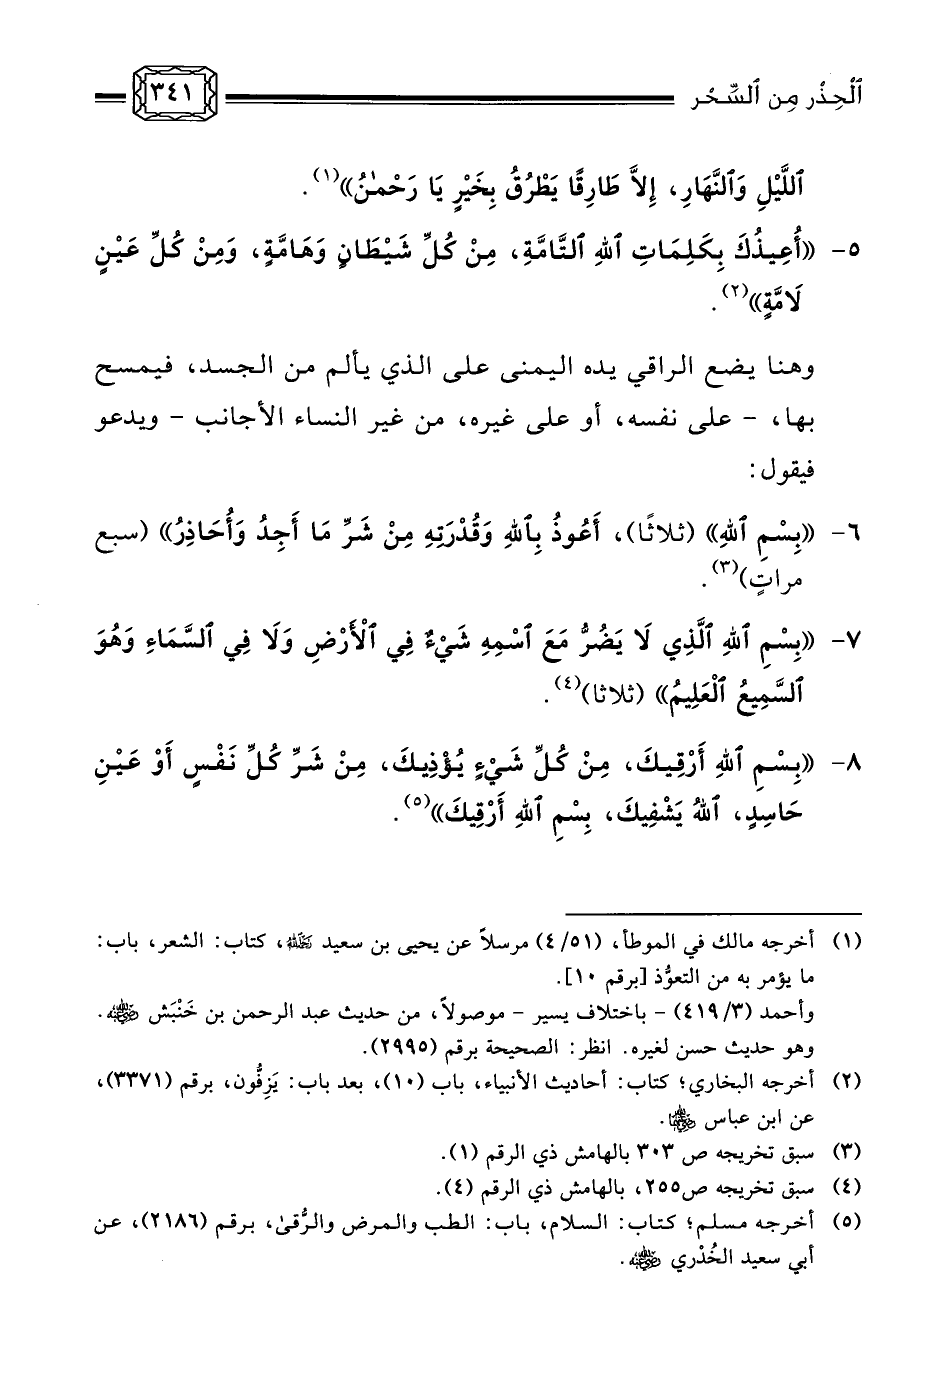 ٱلْحِذْر مِن ٱلسِّحْر
٣٤١
ٱللَّيْلِ وَٱلنَّهَارِ، إِلاَّ طَارِقًا يَطْرُقُ بِخَيْرٍ يَا رَحْمٰنُ»(١).
٥- «أُعِيذُكَ بِكَلِمَاتِ ٱللهِ ٱلتَّامَّةِ، مِنْ كُلِّ شَيْطَانٍ وَهَامَّةٍ، وَمِنْ كُلِّ عَيْنٍ
لَامَّةٍ»(٢).
وهنا يضع الراقي يده اليمنى على الذي يألم من الجسد، فيمسح
بها، - على نفسه، أو على غيره، من غير النساء الأجانب - ويدعو
فيقول:
٦- «بِسْمِ ٱللهِ» (ثلاثًا)، أَعُوذُ بِٱللهِ وَقُدْرَتِهِ مِنْ شَرِّ مَا أَجِدُ وَأُحَاذِرُ» (سبع
مراتٍ)(٣).
٧- «بِسْمِ ٱللهِ ٱلَّذِي لَا يَضُرُّ مَعَ ٱسْمِهِ شَيْءٌ فِي ٱلْأَرْضِ وَلَا فِي ٱلسَّمَاءِ وَهُوَ
ٱلسَّمِيعُ ٱلْعَلِيمُ» (ثلاثا)(٤).
٨- «بِسْمِ ٱللهِ أَرْقِيكَ، مِنْ كُلِّ شَيْءٍ يُؤْذِيكَ، مِنْ شَرِّ كُلِّ نَفْسٍ أَوْ عَيْنِ
حَاسِدٍ، ٱللهُ يَشْفِيكَ، بِسْمِ ٱللهِ أَرْقِيكَ»(٥).
(١) أخرجه مالك في الموطأ، (٤/٥١) مرسلاً عن يحيى بن سعيد رَحِمَهُ اللهُ، كتاب: الشعر، باب:
ما يؤمر به من التعوُّذ [برقم ١٠].
وأحمد (٤١٩/٣) - باختلاف يسير - موصولاً، من حديث عبد الرحمن بن خَنْبَش رضي الله عنه.
وهو حديث حسن لغيره. انظر: الصحيحة برقم (٢٩٩٥).
(٢) أخرجه البخاري؛ كتاب: أحاديث الأنبياء، باب (١٠)، بعد باب: يَزِفُّون، برقم (٣٣٧١)،
عن ابن عباس رضي الله عنهما.
(٣) سبق تخريجه ص ٣٠٣ بالهامش ذي الرقم (١).
(٤) سبق تخريجه ص٢٥٥، بالهامش ذي الرقم (٤).
(٥) أخرجه مسلم؛ كتاب: السلام، باب: الطب والمرض والرُّقىٰ، برقم (٢١٨٦)، عن
أبي سعيد الخُدْري رضي الله عنه.